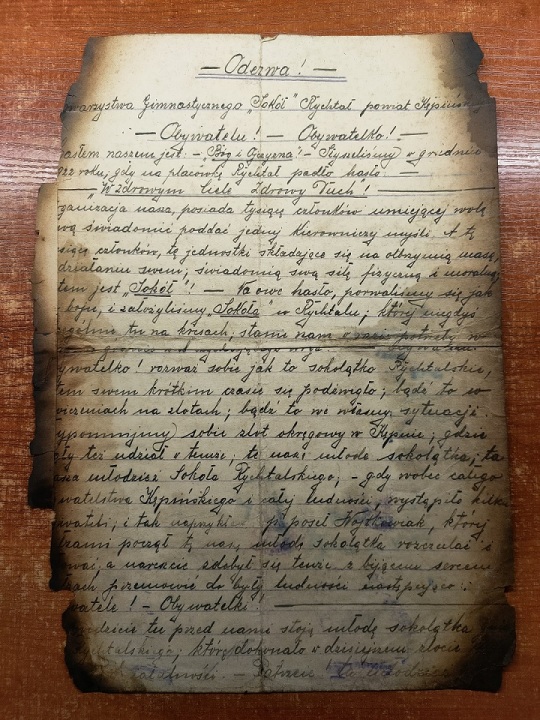 — Odezwa! —
warzystwa Gimnastycznego „Sokół" Rychtal powiat Kępiński
— Obywatelu! — Obywatelko! —
hasłem naszem jest: – „Bóg i Ojczyzna" – Słyszeliśmy w grudniu
922 roku, gdy na placówkę Rychtal padło hasło: —
— „W zdrowym ciele Zdrowy Duch! —
ganizacja nasza, posiada tysiące członków umiejącej wolę
wą świadomie poddać jednej kierowniczej myśli. A tę
siące członków, tę jednostki składające się na olbrzymią masę,
działaniu swem; świadomią swą siłę, fizyczną i moralną
tem jest „Sokół"! — Na owe hasło, porwaliśmy się jak
kopu, i założyliśmy „Sokoła" w Rychtalu; której niegdyś
tu na kresach; stami nam w
gwatelko! rozważ sobie jak to sokolątko Rychtalskie,
tem swem krótkim czasie się podźwigło; bądź to w
iczeniach na zlotach; bądź to we własnej sytuacji
ypomnijmy) sobie zlot okręgowy w Kępnie; gdzie
ły też udział w tenże; te nasze młode sokolątka; ta
asza młodzież Sokoła Rychtalskiego; – gdy wobec całego
watelstwa Kępińskiego i całej ludności, wystąpiło kilka
wateli; i tak p. poseł który
łzami począł tę naszą młodą sokolątka rozczulać i
wać; a narescie zdobył się tenże z bijącem sercem
przemówić do byłej ludności następująco:
watele! – Obywatelki —
widzicie tu przed nami stoją młode sokolątka
Rychtalskiego; które dokonało w dzisiejszem zlocie
–